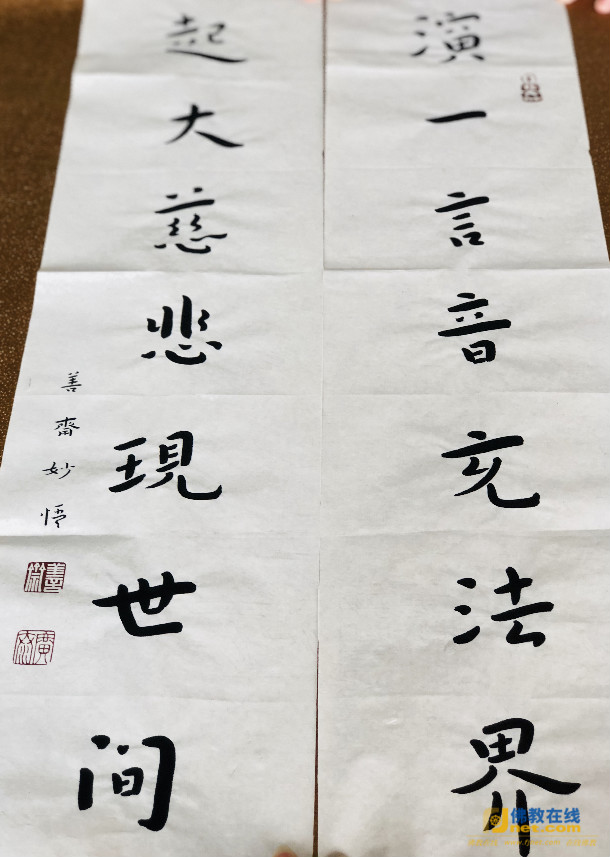 演一言音充法界
起大慈悲現世間
善齋妙悟
佛教在线